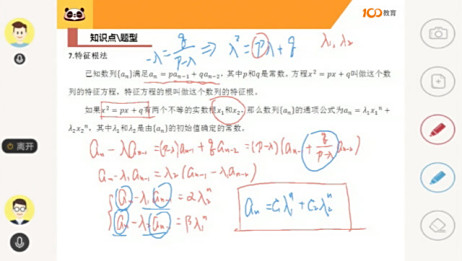 知识点\题型
100教育
7.特征根法
-λ = q/(p-λ) ⇒ λ² = pλ + q
λ₁, λ₂
已知数列{aₙ}满足aₙ = paₙ₋₁ + qaₙ₋₂，其中p和q是常数。方程x² = px + q叫做这个数
列的特征方程，特征方程的根叫做这个数列的特征根。
如果x² = px + q有两个不等的实数根x₁和x₂，那么数列{aₙ}的通项公式为aₙ = λ₁x₁ⁿ +
λ₂x₂ⁿ，其中λ₁和λ₂是由{aₙ}的初始值确定的常数。
aₙ - λaₙ₋₁ = (p-λ)aₙ₋₁ + qaₙ₋₂ = (p-λ)(aₙ₋₁ + q/(p-λ) aₙ₋₂)
aₙ - λ₁aₙ₋₁ = λ₂(aₙ₋₁ - λ₁aₙ₋₂)
aₙ - λ₁aₙ₋₁ = αλ₂ⁿ
aₙ - λ₂aₙ₋₁ = βλ₁ⁿ
aₙ = C₁λ₁ⁿ + C₂λ₂ⁿ
离开